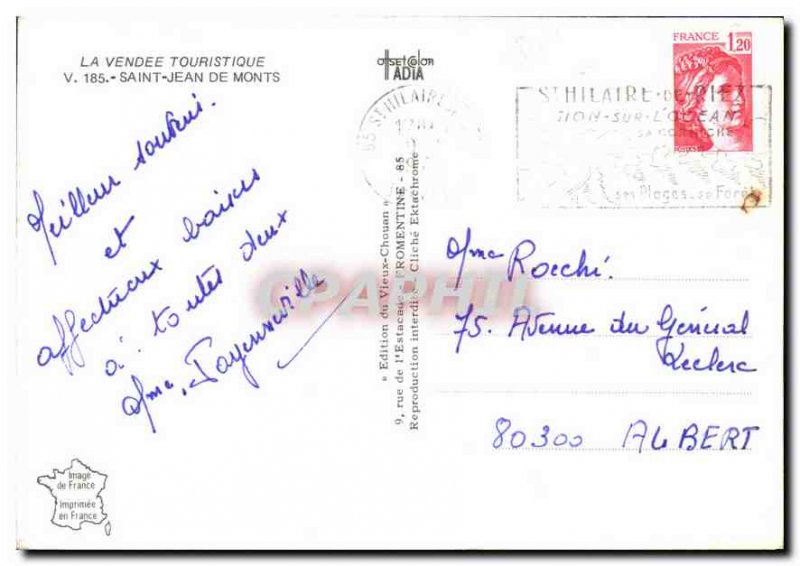 LA VENDEE TOURISTIQUE
V. 185.- SAINT-JEAN DE MONTS
offset color
ADIA
FRANCE 1,20
85 ST HILAIRE
ST HILAIRE-DE-RIEZ
SION-SUR-L'OCEAN
SA CORNICHE
ses Plages, sa Forêt
Meilleur souvenir
et
affectueux baisers
à toutes deux
Mme
« Edition du Vieux-Chouan »
9, rue de l'Estacade - FROMENTINE - 85
Reproduction interdite - Cliché Ektachrome
CPAPHIL
Mme Rocchi.
75, Avenue du Général
Leclerc
80300 ALBERT
Image
de France
Imprimée
en France